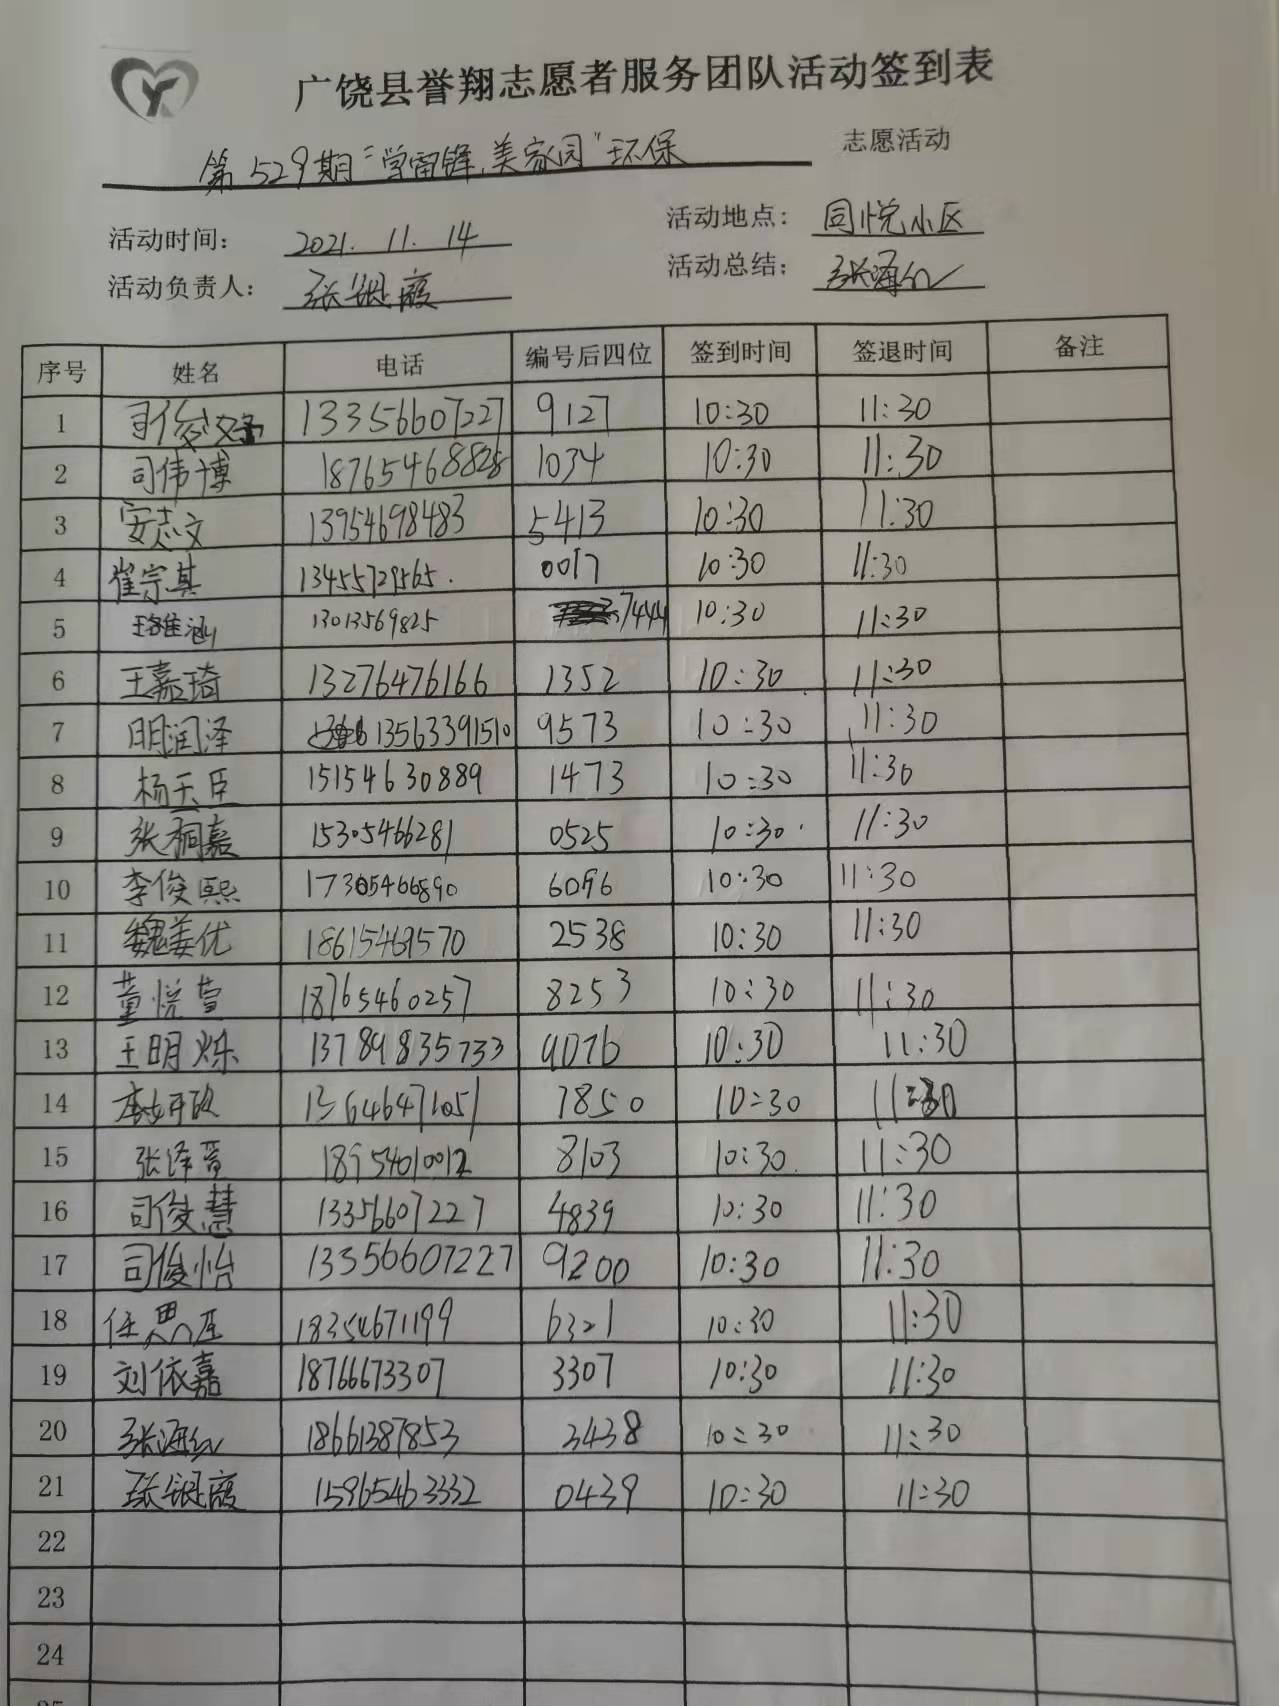 广饶县誉翔志愿者服务团队活动签到表
第529期“学雷锋,美家园”环保 志愿活动
活动时间: 2021. 11. 14 活动地点: 同悦小区
活动负责人: 张银霞 活动总结: 张海红
序号 姓名 电话 编号后四位 签到时间 签退时间 备注
1 司俊 13356607227 9127 10:30 11:30
2 司伟博 18765468828 1034 10:30 11:30
3 安志文 13954698483 5413 10:30 11:30
4 崔宗其 13455729565. 0017 10:30 11:30
5 涵 13013569825 7444 10:30 11:30
6 王嘉琦 13276476166 1352 10:30 11:30
7 明润泽 13563391510 9573 10:30 11:30
8 杨天臣 15154630889 1473 10:30 11:30
9 张桐嘉 15305466281 0525 10:30 11:30
10 李俊熙 17305466890 6096 10:30 11:30
11 魏姜优 18615469570 2538 10:30 11:30
12 董悦萱 18765460257 8253 10:30 11:30
13 王明烁 13789835733 9076 10:30 11:30
14 13646471051 7850 10:30 11:30
15 张泽晋 18954010012 8103 10:30 11:30
16 司俊慧 13356607227 4839 10:30 11:30
17 司俊怡 13356607227 9200 10:30 11:30
18 任思 18354671199 6321 10:30 11:30
19 刘依嘉 18766673307 3307 10:30 11:30
20 张海红 18661387853 3438 10:30 11:30
21 张银霞 15965463332 0439 10:30 11:30
22
23
24